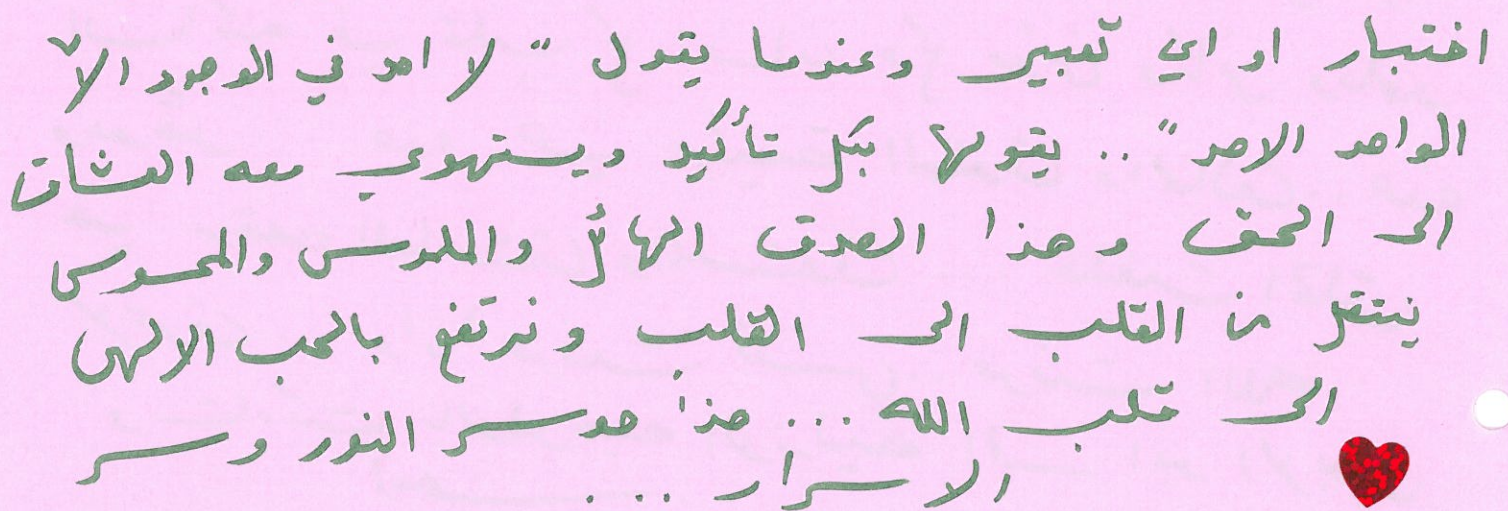 اختبار او اي تعبير وعندما يقول " لا احد في الوجود الاّ
الواحد الاحد" .. يقولها بكل تأكيد ويستهوي معه العشاق
الى الحق وهذا الصدق الهائل والملموس والمحسوس
ينتقل من القلب الى القلب ونرتفع بالحب الالهي
الى قلب الله ... هذا هو سر النور وسر
الاسرار ...